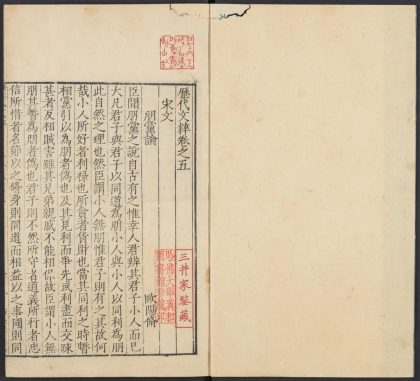 歷代文粹卷之五
宋文
朋黨論 歐陽脩
臣聞朋黨之說自古有之惟幸人君辨其君子小人而已
大凡君子與君子以同道為朋小人與小人以同利為朋
此自然之理也然臣謂小人無朋惟君子則有之其故何
哉小人所好者利祿也所貪者貨財也當其同利之時暫
相黨引以為朋者偽也及其見利而爭先或利盡而交疎
甚者反相賊害雖其兄弟親戚不能相保故臣謂小人無
朋其暫為朋者偽也君子則不然所守者道義所行者忠
信所惜者名節以之脩身則同道而相益以之事國則同
三井家鑒藏
哈佛大學漢和
圖書館珍藏印